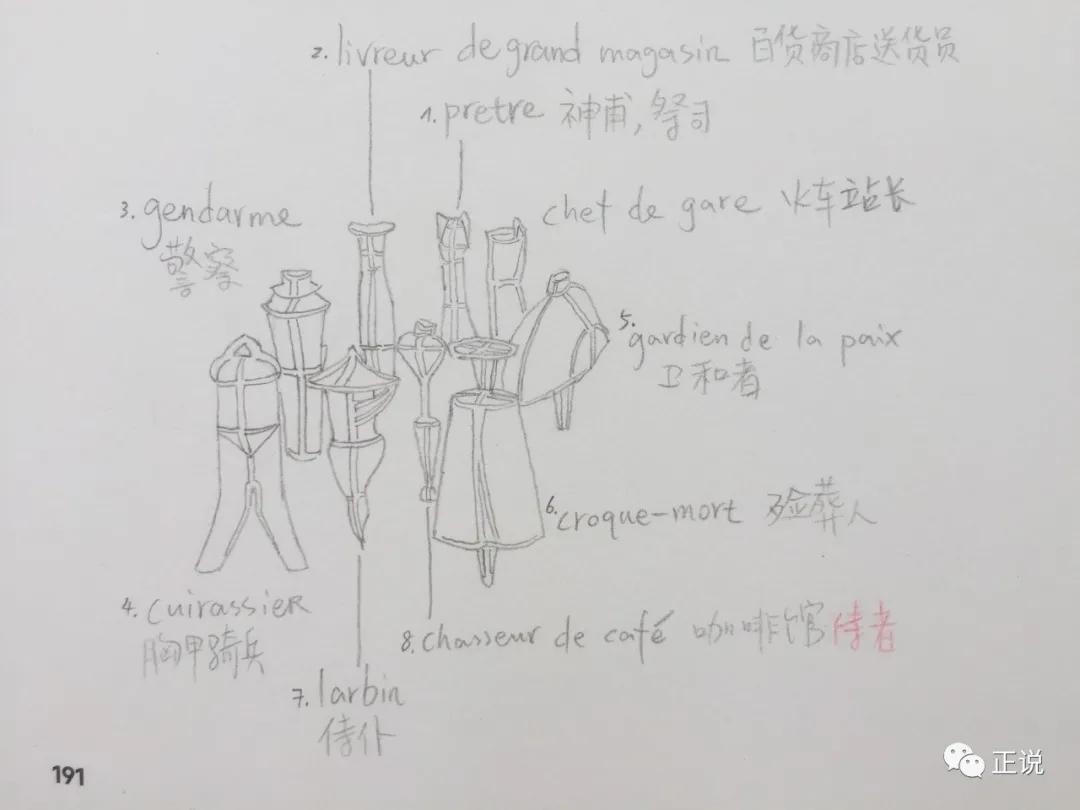 2. livreur de grand magasin 百货商店送货员
1. pretre 神甫,祭司
3. gendarme
警察
chet de gare 火车站长
5. gardien de la paix
卫和者
6. croque-mort 殓葬人
4. cuirassier
胸甲骑兵
8. chasseur de café 咖啡馆侍者
7. larbin
侍仆
191
正说